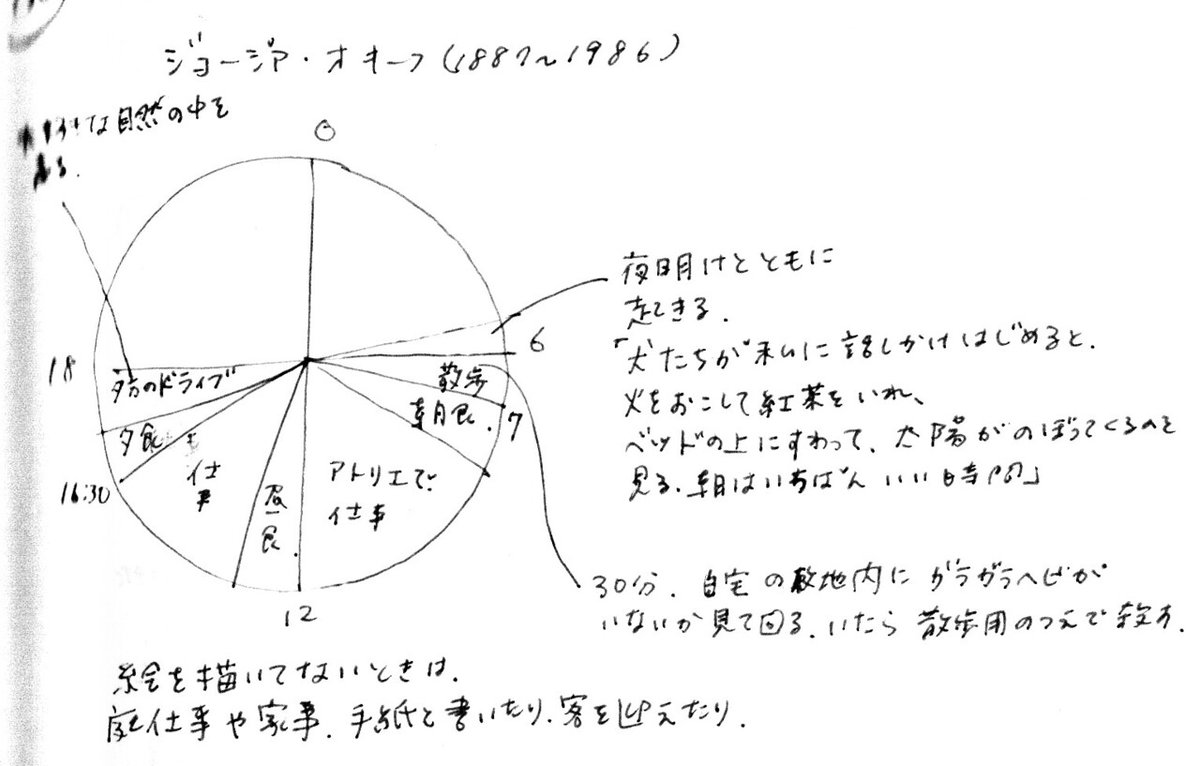 ジョージア・オキーフ(1887〜1986)
好きな自然の中を
走る.
0
夜明けとともに
起きる.
「犬たちが私に話しかけはじめると.
火をおこして紅茶をいれ、
ベッドの上にすわって、太陽がのぼってくるのを
見る.朝はいちばんいい時間」
6
18
夕方のドライブ
散歩
朝食.
7
夕食
16:30
仕事
昼食.
アトリエで
仕事
12
30分.自宅の敷地内にガラガラヘビが
いないか見て回る.いたら散歩用のつえで殺す.
絵を描いてないときは.
庭仕事や家事.手紙を書いたり.客を迎えたり.